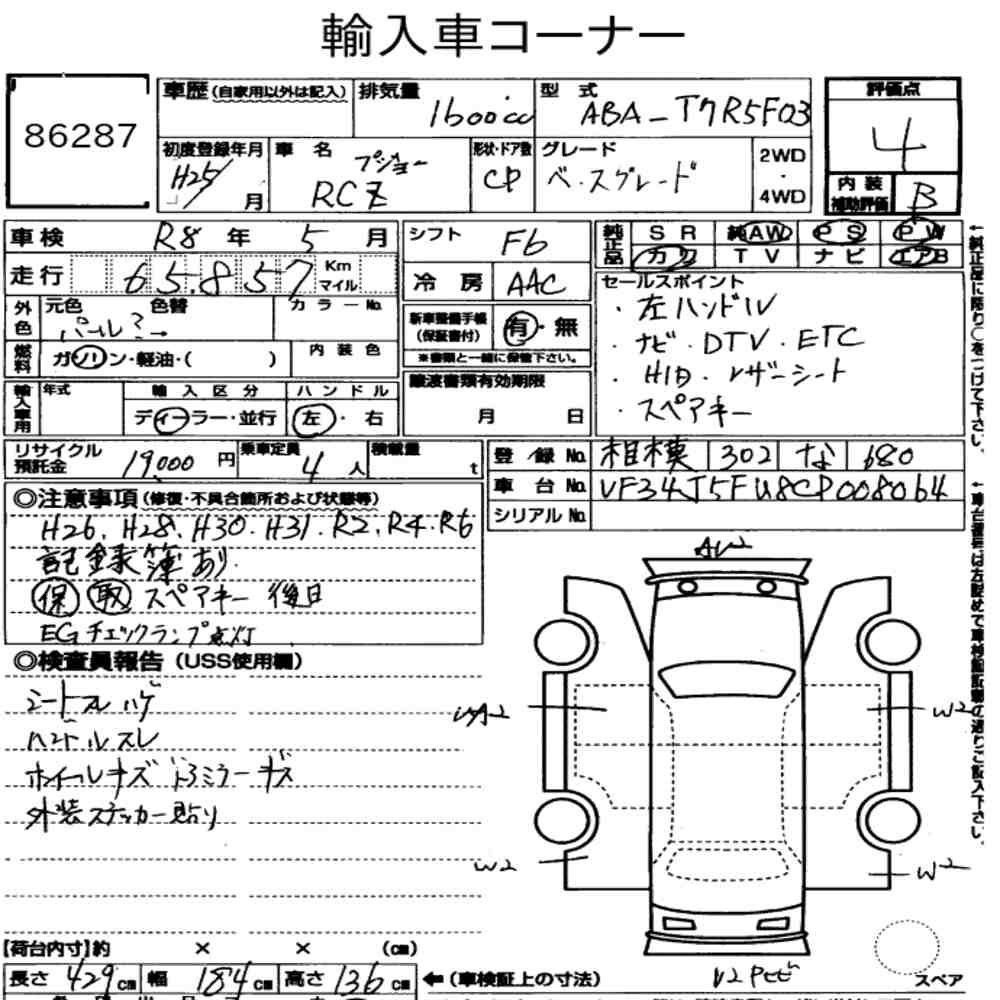 輸入車コーナー
86287
車歴(自家用以外は記入)
排気量 1600cc
型式 ABA-T7R5F03
評価点 4
初度登録年月 H25/ 月
車名 プジョー RCZ
形状・ドア数 CP
グレード ベースグレード
2WD・4WD
内装補助評価 B
車検 R8年 5月
シフト F6
純正品 SR 純AW PS PW
カワ TV ナビ エアB
走行 65,857 Km マイル
冷房 AAC
セールスポイント
・左ハンドル
・ナビ・DTV・ETC
・HID・レザーシート
・スペアキー
外色 元色 パール 色替 カラーNo.
新車整備手帳(保証書付) 有・無
※書類と一緒に保管下さい。
燃料 ガソリン・軽油・( ) 内装色
輸入車用 年式 輸入区分 ディーラー・並行 ハンドル 左・右
譲渡書類有効期限 月 日
リサイクル預託金 19,000円 乗車定員 4人 積載量 t
登録No. 相模 302 な 680
車台No. VF34J5FU8CP008064
シリアルNo.
◎注意事項(修復・不具合箇所および状態等)
H26.H28.H30.H31.R2.R4.R6
記録簿あり
保 取 スペアキー後日
EGチェックランプ点灯
◎検査員報告(USS使用欄)
シートスレハゲ
ハンドルスレ
ホイールキズ ドアミラーキズ
外装ステッカー貼り
AU2
W2
W2
W2
【荷台内寸】約 × × (cm)
長さ 429cm 幅 184cm 高さ 136cm
←(車検証上の寸法)
スペア